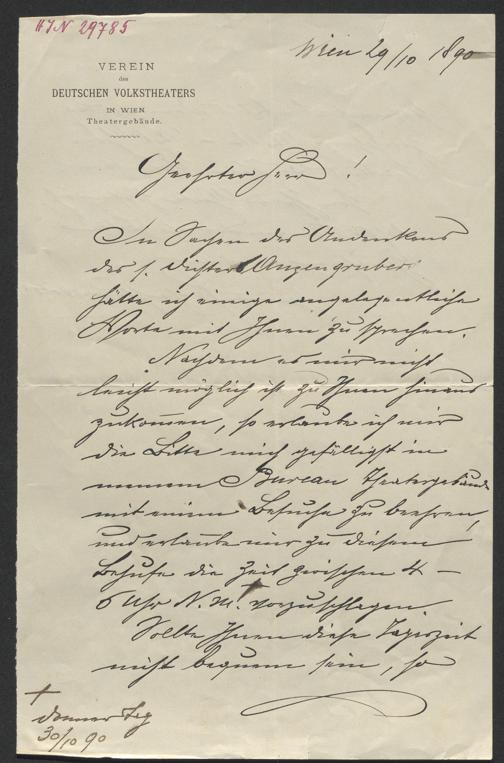 HIN 29785
Wien 29/10 1890
VEREIN
des
DEUTSCHEN VOLKSTHEATERS
IN WIEN
Theatergebäude.
Geehrter Herr!
In Sachen des Andenkens
des s. Dichters Anzengruber
hätte ich einige angelegentliche
Worte mit Ihnen zu sprechen.
Nachdem es mir nicht
leicht möglich ist zu Ihnen hinaus
zukommen, so erlaube ich mir
die Bitte mich gefälligst in
meinem Bureau Theatergebäude
mit einem Besuche zu beehren,
und erlaube mir zu diesem
Behufe die Zeit zwischen 4 –
6 Uhr N. M. vorzuschlagen.
Sollte Ihnen diese Tageszeit
nicht bequem sein, so
+
Donnerstag
30/10 90